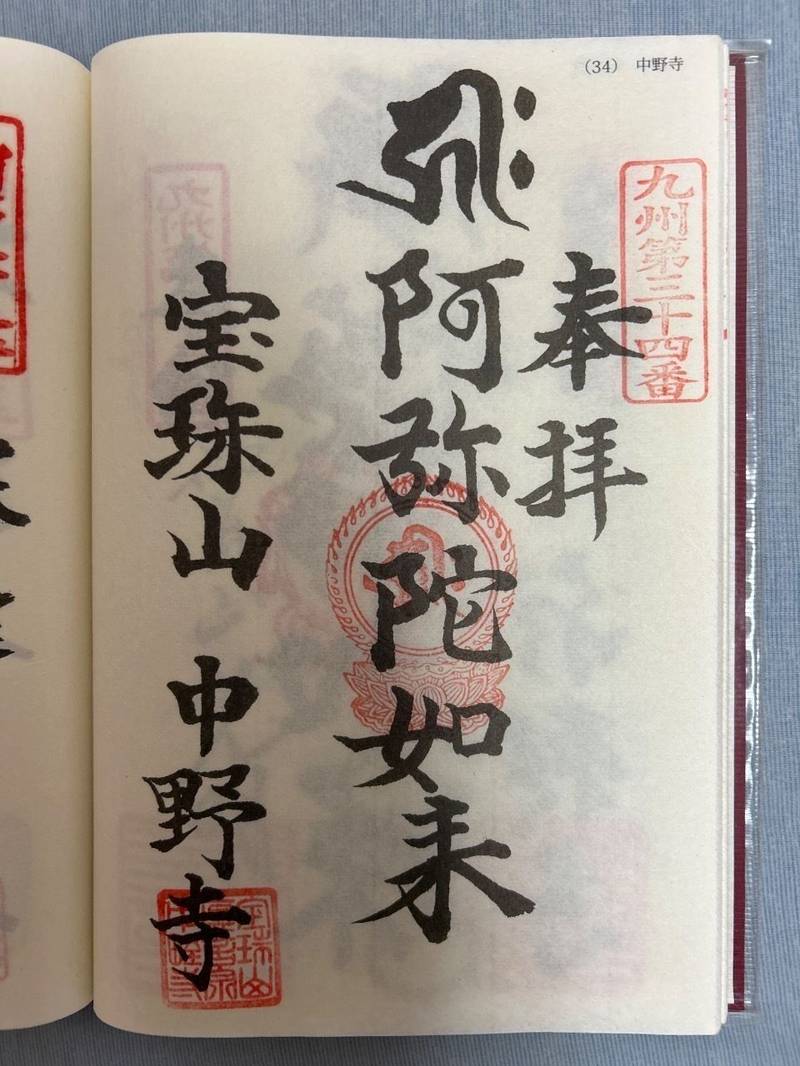 (34) 中野寺
九州第三十四番
奉拝
ह्रीः阿弥陀如来
宝珠山 中野寺